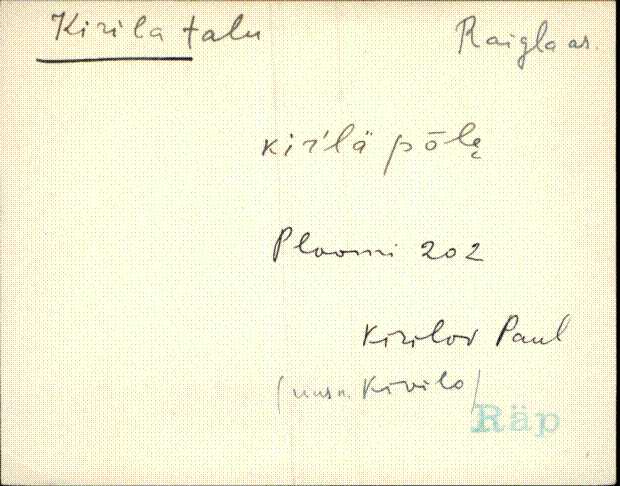 Kirila talu
Raigla as.
kiŕilä põlę
Ploomi 202
Kirilov Paul
(uusn. Kivilo)
Räp